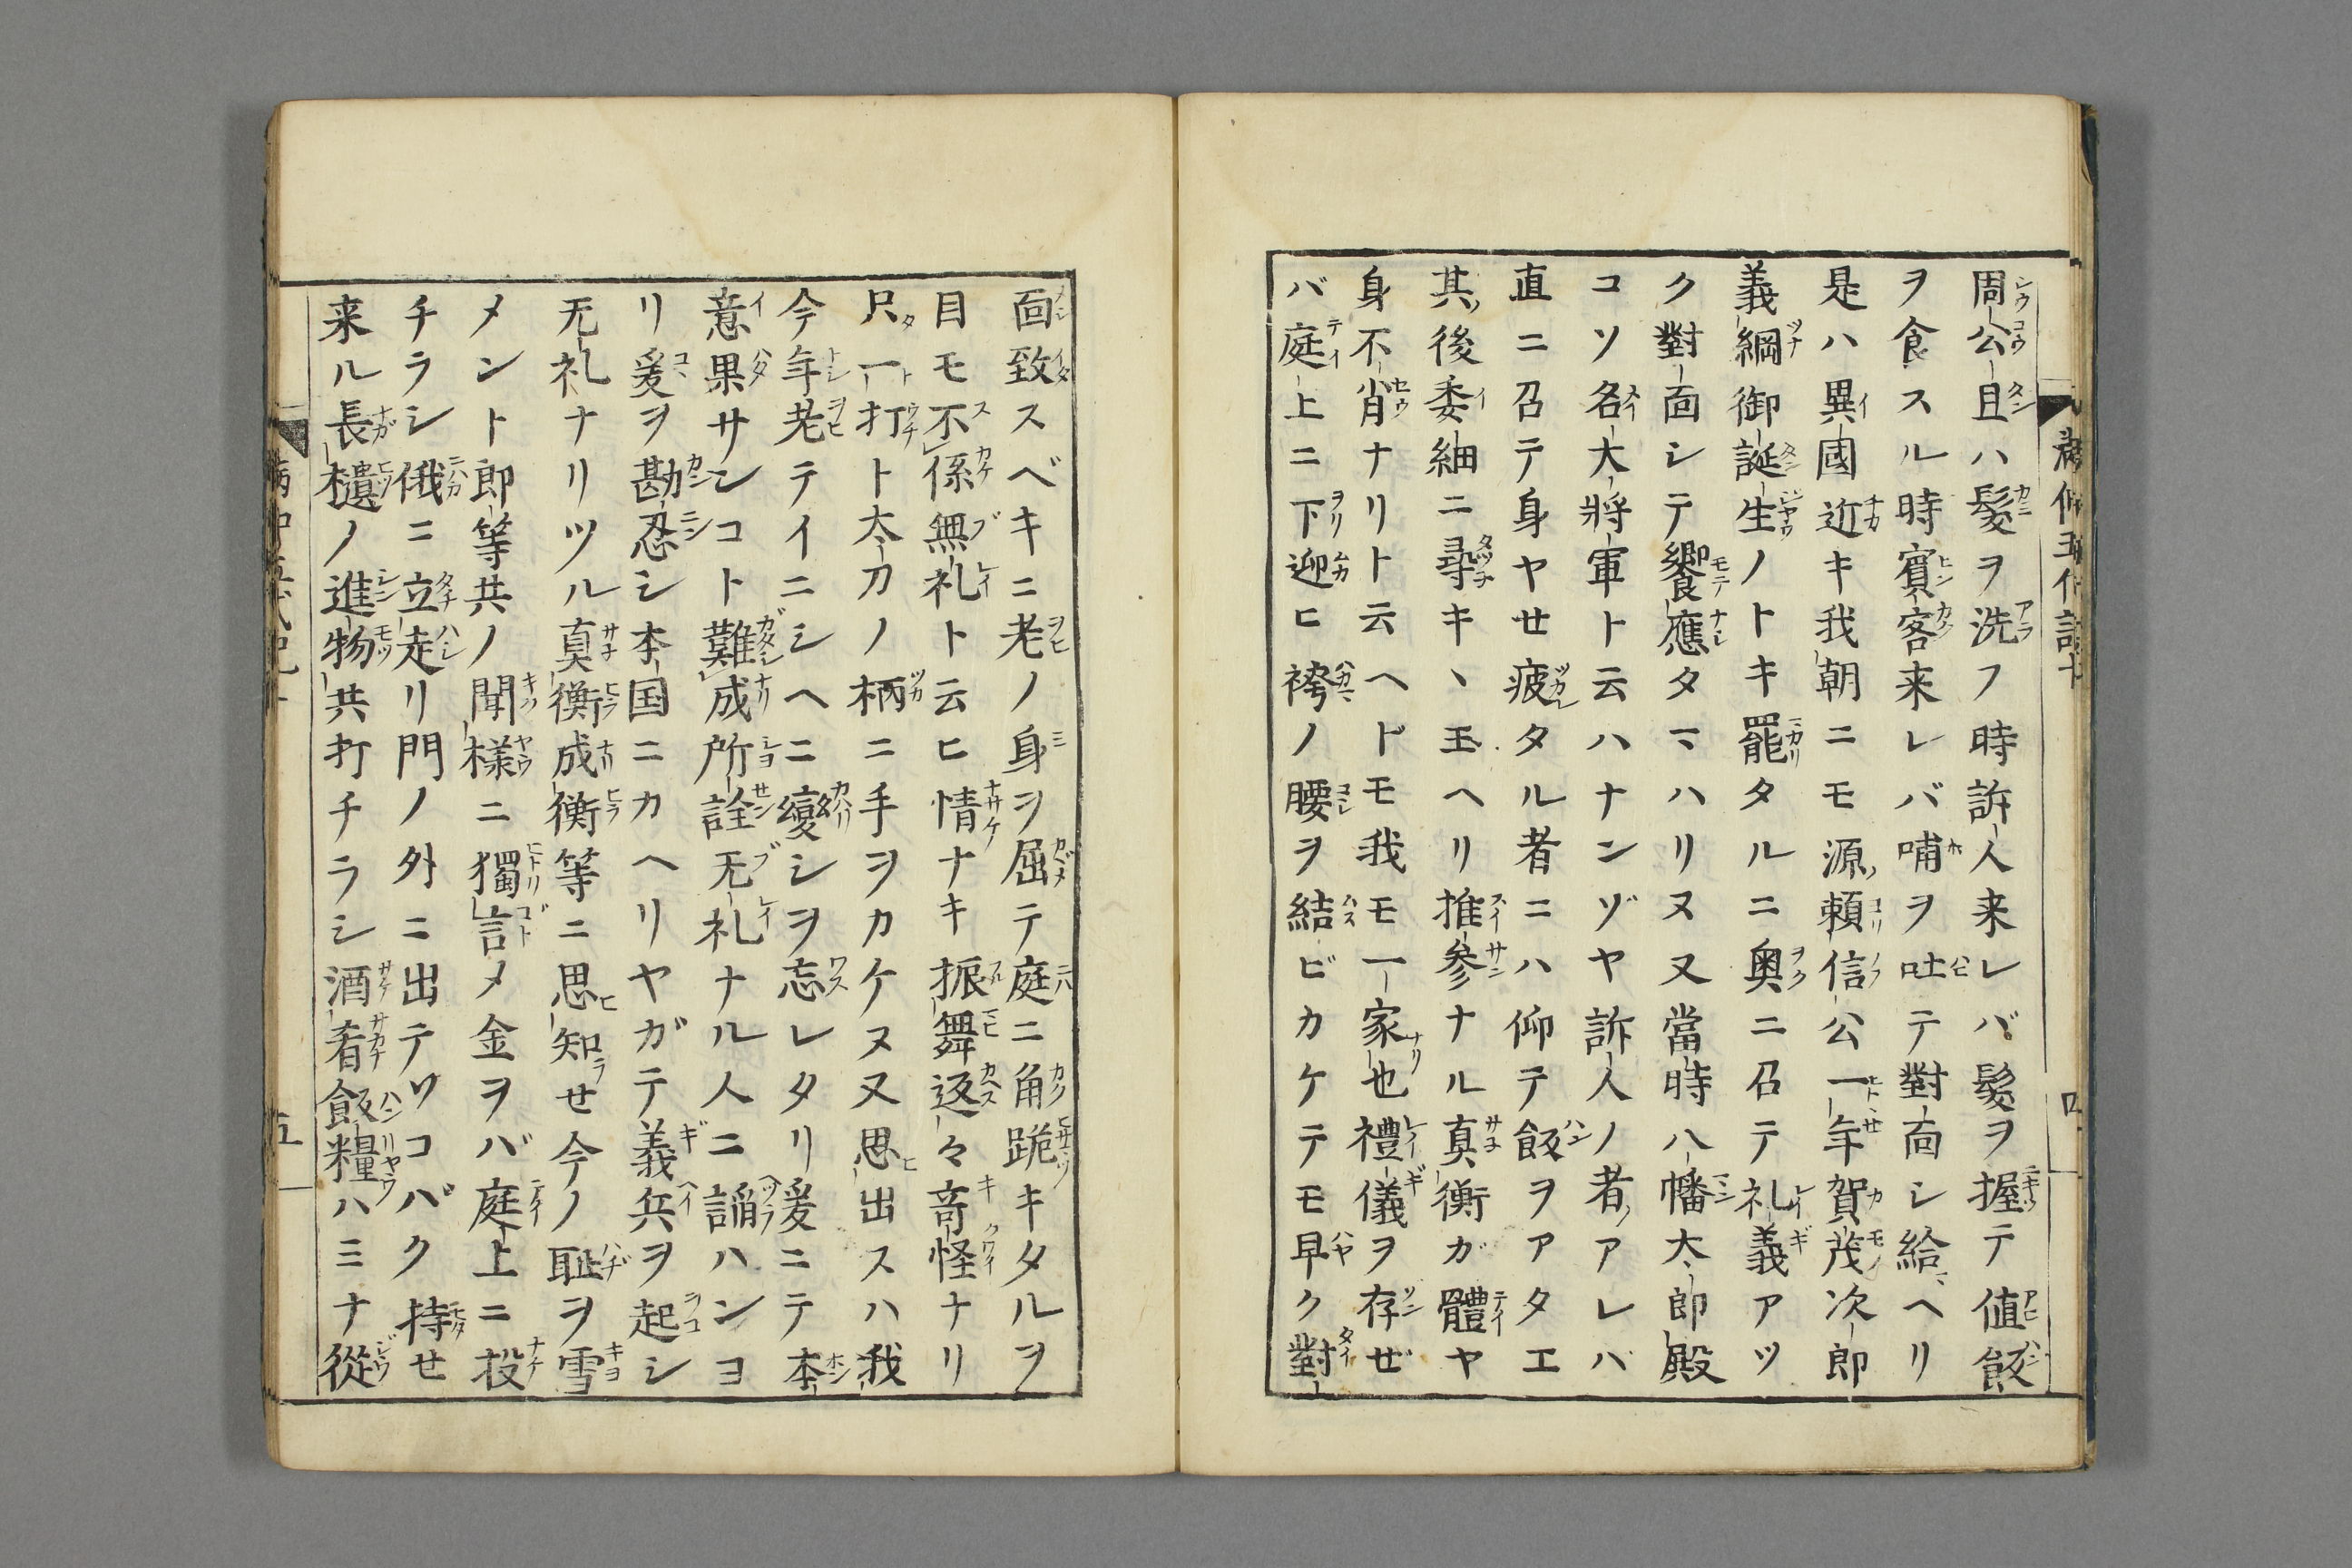 周公旦ハ髪ヲ洗フ時訴人来レバ髪ヲ握テ値飯
ヲ食スル時賓客来レバ哺ヲ吐テ對面シ給ヘリ
是ハ異國近キ我朝ニモ源頼信公一年賀茂次郎
義綱御誕生ノトキ罷タルニ奥ニ召テ礼義アツ
ク對面シテ饗應タマハリヌ又當時八幡太郎殿
コソ名大将軍ト云ハナンゾヤ訴人ノ者アレバ
直ニ召テ身ヤせ疲タル者ニハ仰テ飯ヲアタエ
其後委細ニ尋キヽ玉ヘリ推参ナル真衡ガ體ヤ
身不肖ナリト云ヘドモ我モ一家也禮儀ヲ存ぜ
バ庭上ニ下迎ヒ袴ノ腰ヲ結ビカケテモ早ク對
面致スベキニ老ノ身ヲ屈テ庭ニ角跪キタルヲ
目モ不係無礼ト云ヒ情ナキ振舞返々竒怪ナリ
只一打ト太刀ノ柄ニ手ヲカケヌ又思出スハ我
今年老テイニシヘニ變シヲ忘レタリ爰ニテ本
意果サンコト難成所詮无礼ナル人ニ謟ハンヨ
リ爰ヲ勘忍シ本国ニカヘリヤガテ義兵ヲ起シ
无礼ナリツル真衡成衡等ニ思知せ今ノ耻ヲ雪
メント郎等共ノ聞様ニ獨言メ金ヲバ庭上ニ投
チラシ俄ニ立走リ門ノ外ニ出テソコバク持せ
来ル長櫃ノ進物共打チラシ酒肴飯糧ハミナ從